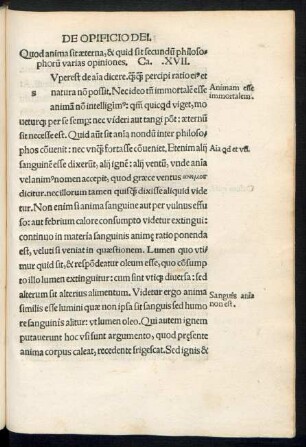 DE OPIFICIO DEI.
Quod anima sit æterna, & quid sit secundū philoso-
phorū varias opiniones, Ca. XVII.
s
Vperest de aīa dicere, q̄q̄ percipi ratio eiꝰ et
natura nō possit. Nec ideo tñ immortalē esse
animā nō intelligimꝰ: qm̄ quicqd viget, mo
ueturq; per se semꝑ: nec videri aut tangi pōt: æternū
sit necesse est. Quid aūt sit aīa nondū inter philoso-
phos cōuenit: nec vnq̄ fortasse cōueniet. Etenim alij
sanguinē esse dixerūt, alij ignē: alij ventū, vnde anīa
vel animꝰ nomen accepit, quod græce ventus ανεμος
dicitur. nec illorum tamen quisq̄ dixisse aliquid vide
tur. Non enim si anima sanguine aut per vulnus effu
so: aut febrium calore consumpto videtur extingui:
continuo in materia sanguinis animę ratio ponenda
est, veluti si veniat in quæstionem. Lumen quo vti-
mur quid sit, & respōdeatur oleum esse, quo cōsum-
pto illo lumen extinguitur: cum sint vtiq; diuersa: sed
alterum sit alterius alimentum. Videtur ergo anima
similis esse lumini quę non ipsa sit sanguis sed humo
re sanguinis alitur: vt lumen oleo. Qui autem ignem
putauerunt hoc vsi sunt argumento, quod pręsente
anima corpus caleat, recedente frigescat. Sed ignis &
Animam esse
immortalem.
Aīa qd et vñ.
Sanguis anīa
non est.